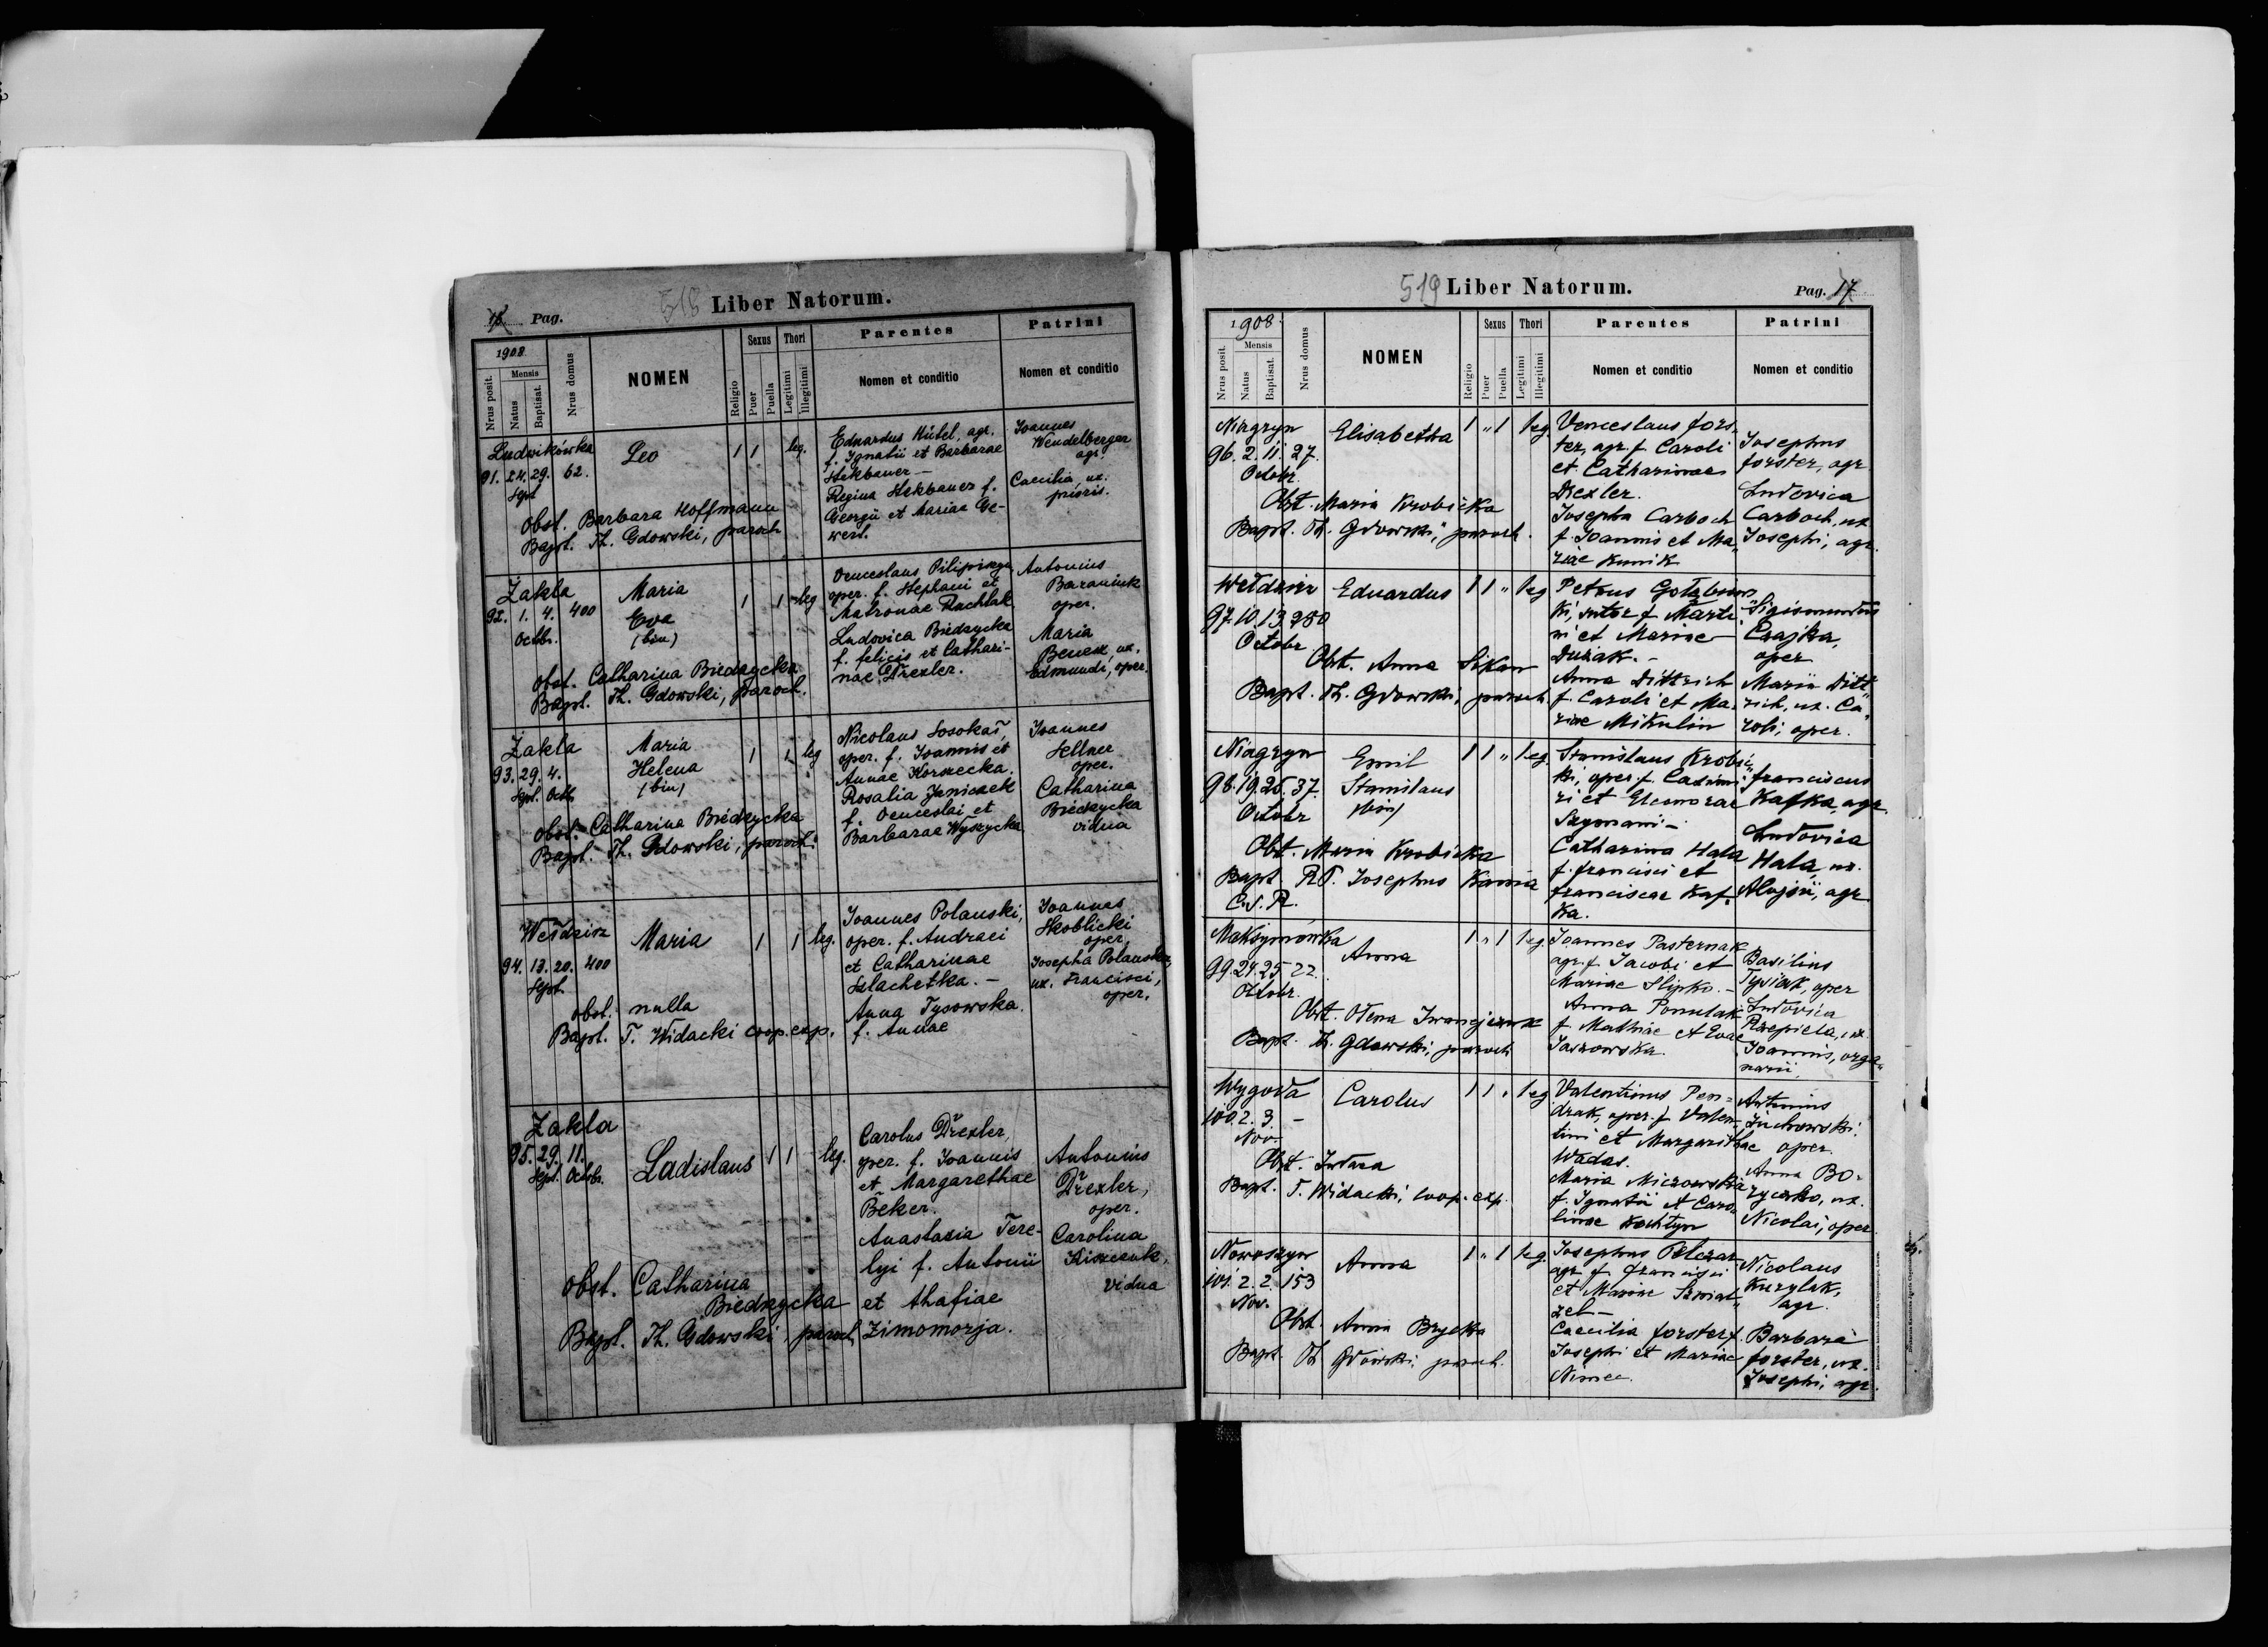 16 Pag. 518 Liber Natorum.
1908
Nrus posit.
Mensis
Natus
Baptisat.
Nrus domus
NOMEN
Religio
Sexus
Puer
Puella
Thori
Legitimi
Illegitimi
Parentes
Nomen et conditio
Patrini
Nomen et conditio
Ludwikówka
91. 24. 29. 62.
Sept
Leo
1 1 leg.
Eduardus Hütel, agr.
f. Ignatii et Barbarae
Hekbauer —
Regina Hekbauer f.
Georgii et Mariae Ge-
werl.
Joannes
Wendelberger
agr.
Caecilia, ux.
prioris.
obst. Barbara Hoffmann
Bapt. Th. Gdowski, paroch
Zakla
92. 1. 4. 400
Octbr.
Maria
Eva
(bin)
1 1 leg
Venceslaus Pilipinge
oper. f. Stephani et
Matronae Rachlak
Ludovica Biedzycka
f. felicis et Cathari-
nae Drexler.
Antonius
Baraniuk
oper.
Maria
Benesz, ux.
Edmundi, oper.
obst. Catharina Biedzycka
Bapt. Th. Gdowski, paroch.
Zakla
93. 29. 4.
Sept. Octb
Maria
Helena
(bin)
1 1 leg
Nicolaus Sosokai,
oper. f. Joannis et
Annae Korzecka.
Rosalia Janiczek
f. Venceslai et
Barbarae Wyszycka
Joannes
Sellner
oper.
Catharina
Biedzycka
vidua
obst. Catharina Biedzycka
Bapt. Th. Gdowski, paroch.
Wełdzirz
94. 13. 20. 400
Sept
Maria
1 1 leg.
Joannes Polanski,
oper. f. Andraei
et Catharinae
Szlachetka. —
Anna Tysowska
f. Annae
Joannes
Skoblicki
oper.
Josepha Polanska,
ux. Francisci,
oper.
obst. nulla
Bapt. T. Widacki coop. exp.
Zakla
95. 29. 11.
Sept. Octbr.
Ladislaus
1 1 leg.
Carolus Drexler,
oper. f. Joannis
et Margarethae
Beker.
Anastazia Tere-
lyi f. Antonii
et Ahafiae
Zimomorja.
Antonius
Drexler,
oper.
Carolina
Kiszczuk,
vidua
obst. Catharina
Biedzycka
Bapt. Th. Gdowski, paroch
519 Liber Natorum. Pag. 17
1908.
Nrus posit.
Mensis
Natus
Baptisat.
Nrus domus
NOMEN
Religio
Sexus
Puer
Puella
Thori
Legitimi
Illegitimi
Parentes
Nomen et conditio
Patrini
Nomen et conditio
Niagryn
96. 2. 11. 27.
Octobr.
Elisabetha
1 " 1 leg.
Venceslaus fors-
ter, agr. f. Caroli
et Catharinae
Drexler.
Josepha Carboch
f. Joannis et Ma-
riae Kunik
Josephus
forster, agr
Ludovica
Carboch, ux
Josephi, agr.
Obst. Maria Krobicka
Bapt. Th. Gdowski, paroch.
Wełdzirz
97. 10. 13. 250
Octobr
Eduardus
1 1 " leg
Petrus Gołębiows
ki, sutor f. Marti-
ni et Mariae
Duziak. —
Anna Dittrich
f. Caroli et Ma-
riae Mikulin
Sigismundus
Czajka,
oper
Maria Ditt
rich, ux. Ca
roli, oper.
Obst. Anna Sikan
Bapt. Th. Gdowski, paroch.
Niagryn
98. 19. 25. 37.
Octobr
Emil
Stanislaus
(bin)
1 1 " leg.
Stanislaus Krobic
ki, oper. f. Casimi-
ri et Eleonorae
Szymani —
Catharina Hala
f. francisci et
franciscae Kaf-
ka.
franciscus
Kafka, agr.
Ludovica
Hala, ux.
Alojsii, agr.
Obst. Maria Krobicka
Bapt. R.P. Josephus Kania
C.S.R.
Maksymówka
99. 24. 25 22.
Octobr.
Anna
1 " 1 leg.
Joannes Pasternak
agr. f. Jacobi et
Mariae Slipko. —
Anna Ponulak
f. Mathiae et Evae
Jaszowska.
Basilius
Tysiak, oper
Ludovica
Rzepiela, ux.
Joannis, orga
narii,
Obst. Olena Iwanejczuk
Bapt. Th. Gdowski, paroch
Wygoda
100. 2. 3. —
Nov.
Carolus
1 1 " leg
Valentinus Pen-
drak, oper. f. Valen-
tini et Margarithae
Wadas.
Maria Miczowska
f. Ignatii et Caro-
linae Kochtyn
Antonius
Zuchowski.
oper.
Anna Bo-
ryczko, ux.
Nicolai, oper
Obst. Judaea
Bapt. T. Widacki, coop. exp.
Nowoszyn
101. 2. 2. 153
Nov.
Anna
1 " 1 leg.
Josephus Pelczar
agr. f. francisci
et Mariae Szwiat
zel —
Caecilia forster f.
Josephi et Mariae
Nimec.
Nicolaus
Kurylak,
agr.
Barbara
forster, ux.
Josephi, agr.
Obst. Anna Brycka
Bapt. Th Gdowski, paroch.